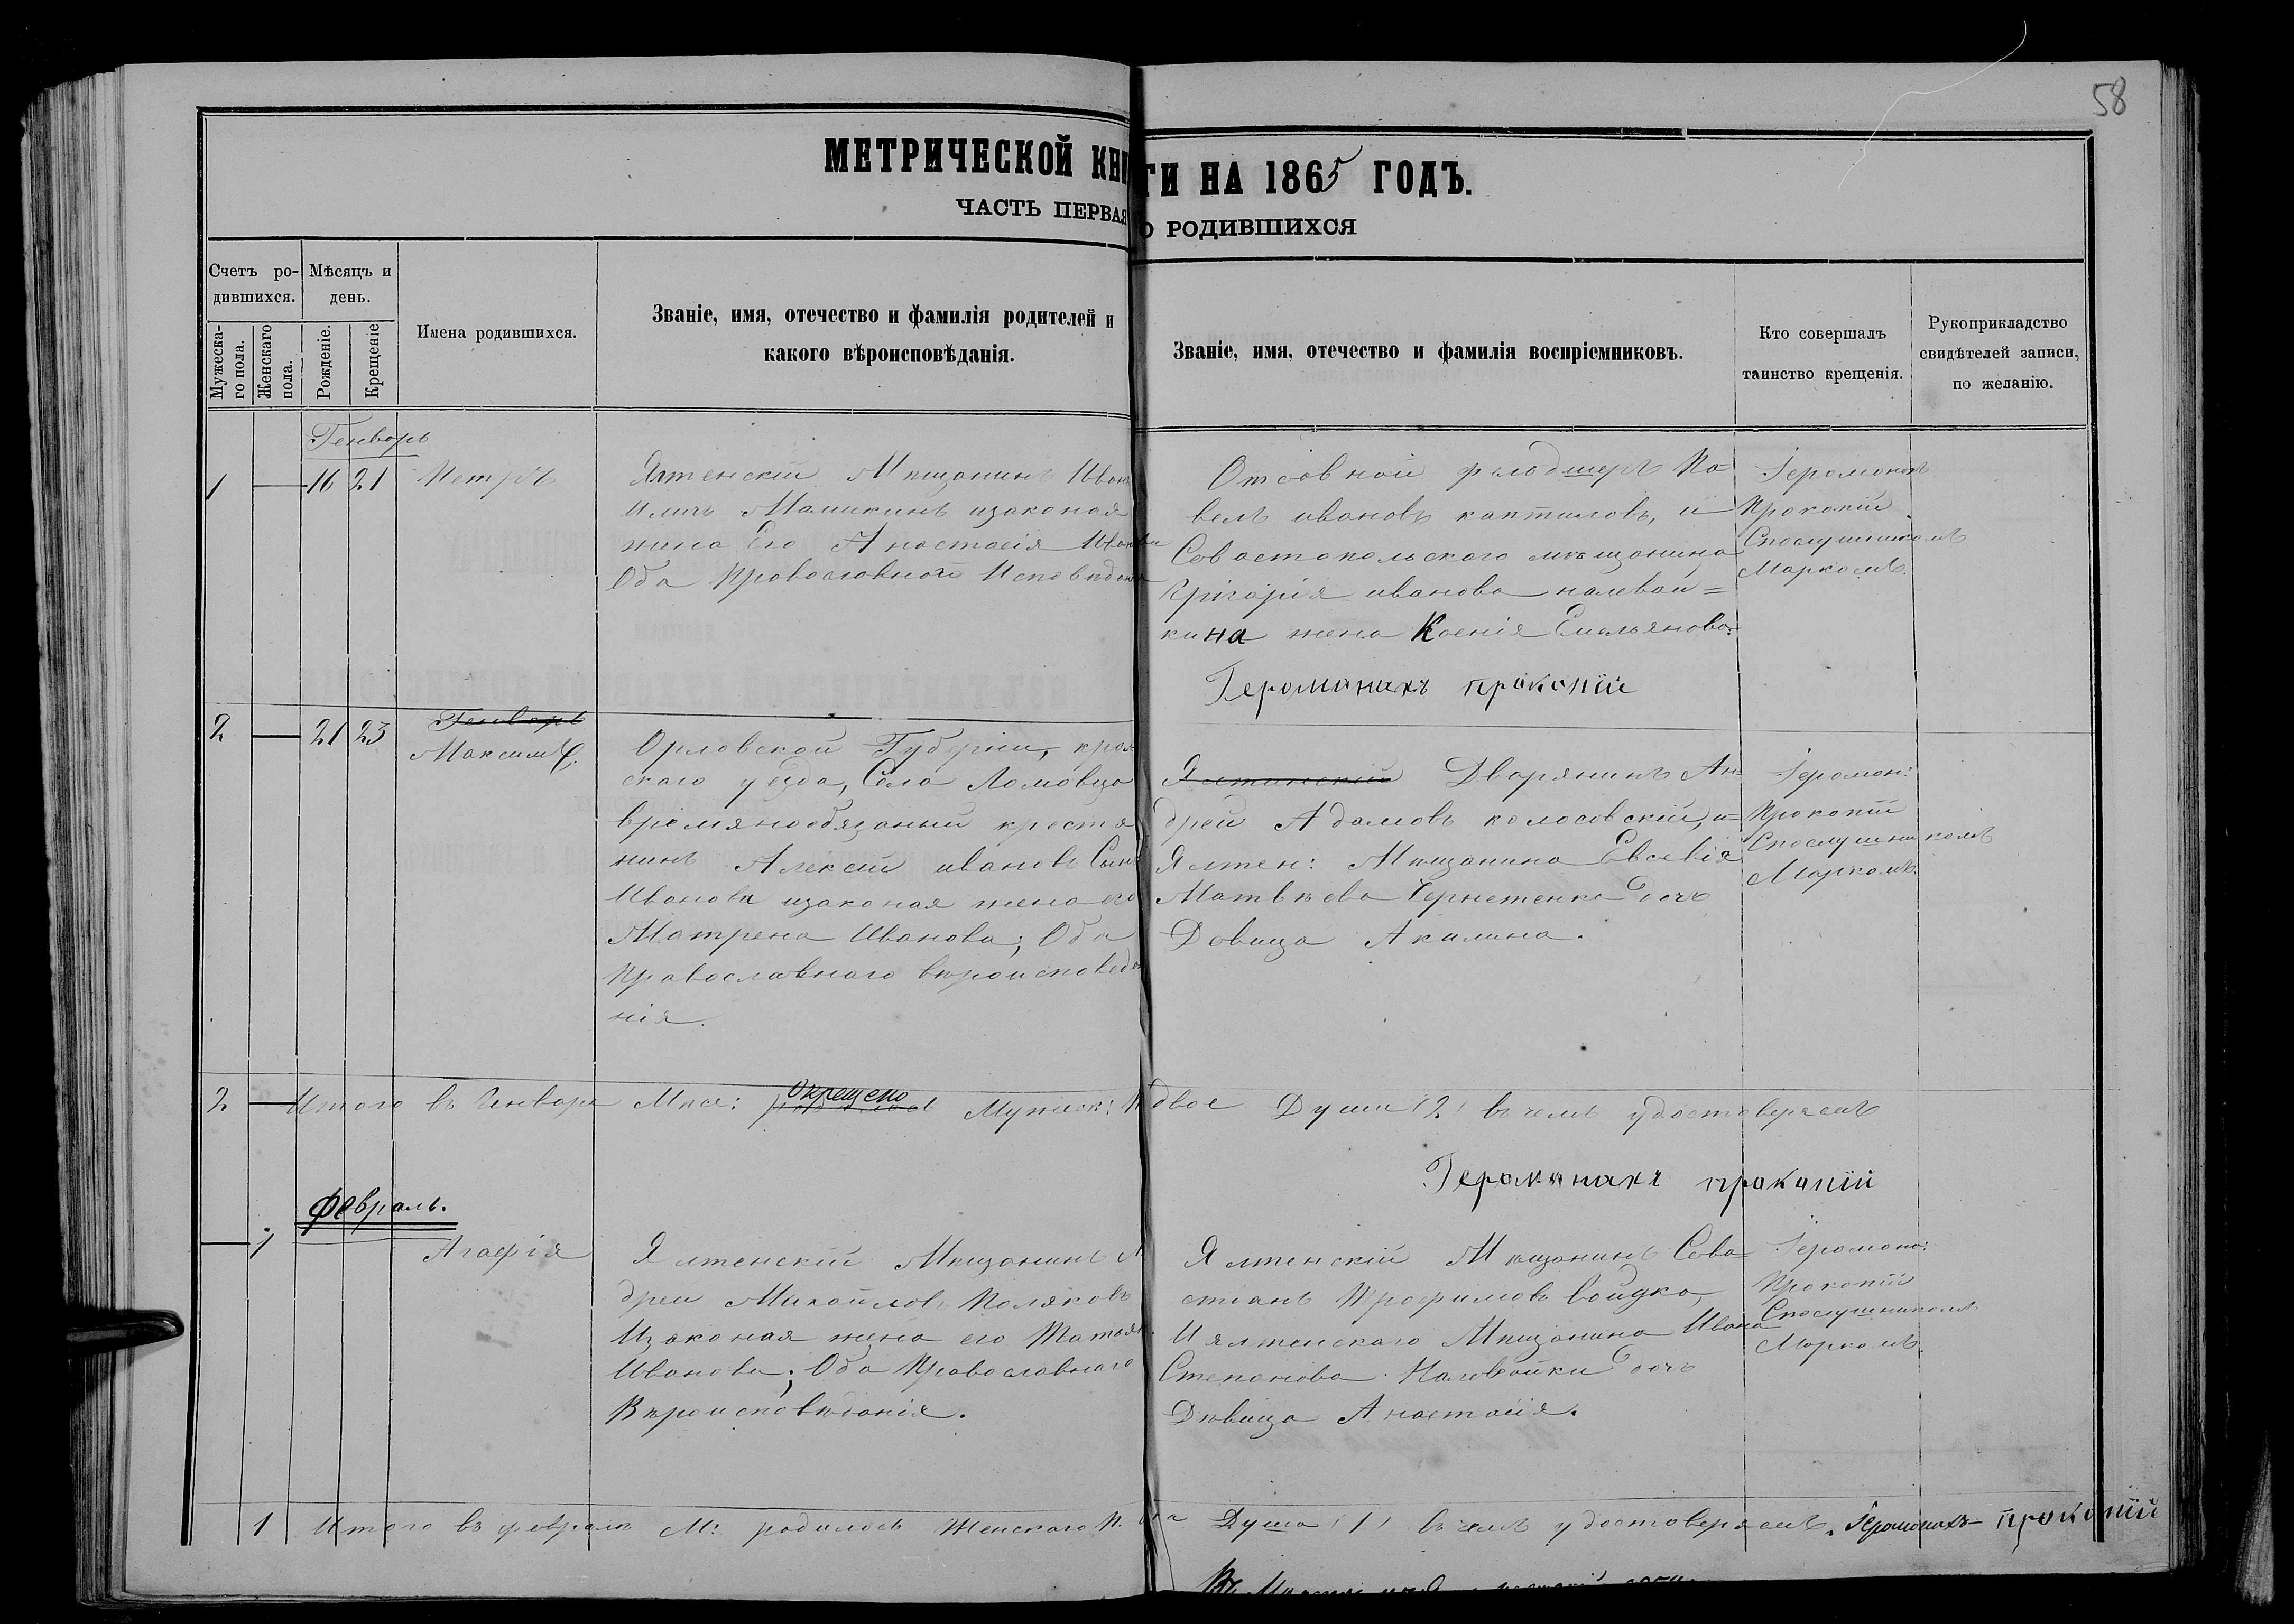 58
МЕТРИЧЕСКОЙ КНИГИ НА 1865 ГОДЪ.
ЧАСТЬ ПЕРВАЯ О РОДИВШИХСЯ
Счетъ ро-
дившихся.
Мужеска-
го пола.
Женскаго
пола.
Мѣсяцъ и
день.
Рожденіе.
Крещеніе
Имена родившихся.
Званіе, имя, отечество и фамилія родителей и
какого вѣроисповѣданія.
Званіе, имя, отечество и фамилія воспріемниковъ.
Кто совершалъ
таинство крещенія.
Рукоприкладство
свидѣтелей записи,
по желанію.
Генворь
1 — 16 21 Петръ
Ялтенскій Мѣщанинъ Иван
Иличъ Мамикинъ изаконая
жина Его Анастасія Иванова
Оба Провославного Исповѣдан
Отсовной фелдшеръ Па
велъ ивановъ каптиловъ, и
Совастопольского мѣщанина
Григорія иванова налевай=
кина жена Ксенія Емельянова:
Іеромонахъ
Прокопій
Спослушникомъ
Маркомъ.
Геромонахъ прокопій
2 — 21 23 Генворь
Максимъ.
Орловской Губерніи, кром
скаго уезда, Села Ломовца
времянообязаный крестя
нинъ Алексей ивановъ Сынъ
Ивановъ изаконая жена его
Матрена Иванова; Оба
Православнаго вѣроисповеда
нія.
Ялтинскій Дворянинъ Ан
дрей Адамовъ колосовскій, и=
Ялтен: Мѣщанина Евсевія
Матвѣева Чернетенка Дочь
Довица Акилина.
Іеромон:
Прокопій
Спослушникомъ
Маркомъ.
2 — Итого въ Генваре Мѣсе: Окрещено Мужеск: П двое Души /2/ въ чемъ удостоверяемъ
Геромонахъ прокопій
Февраль.
— 1 Агафія
Ялтенскій Мѣщанинъ А
дреи Михайловъ Поляковъ
Изаконая жена его Татьян
Иванова; Оба Православнаго
Вѣроисповѣданія.
Ялтенскій Мѣщанинъ Сева=
стіанъ Трофимовъ войдко,
И ялтенскаго Мѣщанина Ивана
Степанова Налевайки Дочь
Дѣвица Анастасія.
Іеромона:
Прокопій
Спослушникомъ
Маркомъ.
1 Итого въ февралѣ М: родилось Женскаго П. Душа /1/ въ чемъ удостоверяемъ. Іеромонахъ прокопій